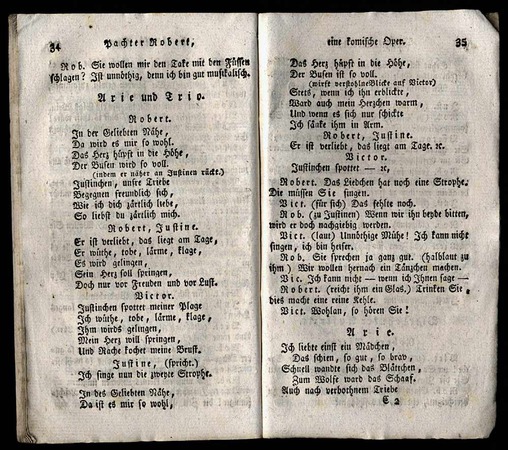 34 Pachter Robert,
Rob. Sie wollen mir den Takt mit den Füssen
schlagen? Ist unnöthig, denn ich bin gut musikalisch.
Arie und Trio.
Robert.
In der Geliebten Nähe,
Da wird es mir so wohl.
Das Herz hüpft in die Höhe,
Der Busen wird so voll.
(indem er näher an Justinen rückt.)
Justinchen, unsre Triebe
Begegnen freundlich sich,
Wie ich dich zärtlich liebe,
So liebst du zärtlich mich.
Robert, Justine.
Er ist verliebt, das liegt am Tage,
Er wüthe, tobe, lärme, klage,
Es wird gelingen,
Sein Herz soll springen,
Doch nur vor Freuden und vor Lust.
Victor.
Justinchen spottet meiner Plage
Ich wüthe, tobe, lärme, klage,
Ihm wirds gelingen,
Mein Herz will springen,
Und Rache kochet meine Brust.
Justine, (spricht.)
Ich singe nun die zweyte Strophe.
In des Geliebten Nähe,
Da ist es mir so wohl,
eine komische Oper. 35
Das Herz hüpft in die Höhe,
Der Busen ist so voll.
(wirft verstohlne Blicke auf Victor)
Stets, wenn ich ihn erblickte,
Ward auch mein Herzchen warm,
Und wenn es sich nur schickte
Ich sänke ihm in Arm.
Robert, Justine.
Er ist verliebt, das liegt am Tage. ꝛc.
Victor.
Justinchen spottet — ꝛc,
Robert. Das Liedchen hat noch eine Strophe.
Die müssen Sie singen.
Vict. (für sich) Das fehlte noch.
Rob. (zu Justinen) Wenn wir ihn beyde bitten,
wird er doch nachgiebig werden.
Vict. (laut) Unnöthige Mühe! Ich kann nicht
singen, ich bin heiser.
Rob. Sie sprechen ja ganz gut. (halblaut zu
ihm) Wir wollen hernach ein Tänzchen machen.
Vic. Ich kann nicht — wenn ich Ihnen sage —
Robert. (reicht ihm ein Glas.) Trinken Sie
dies macht eine reine Kehle.
Vict. Wohlan, so hören Sie!
Arie.
Ich liebte einst ein Mädchen,
Das schien, so gut, so brav,
Schnell wandte sich das Blättchen,
Zum Wolfe ward das Schaaf.
Auch nach verbothnem Triebe
C 2